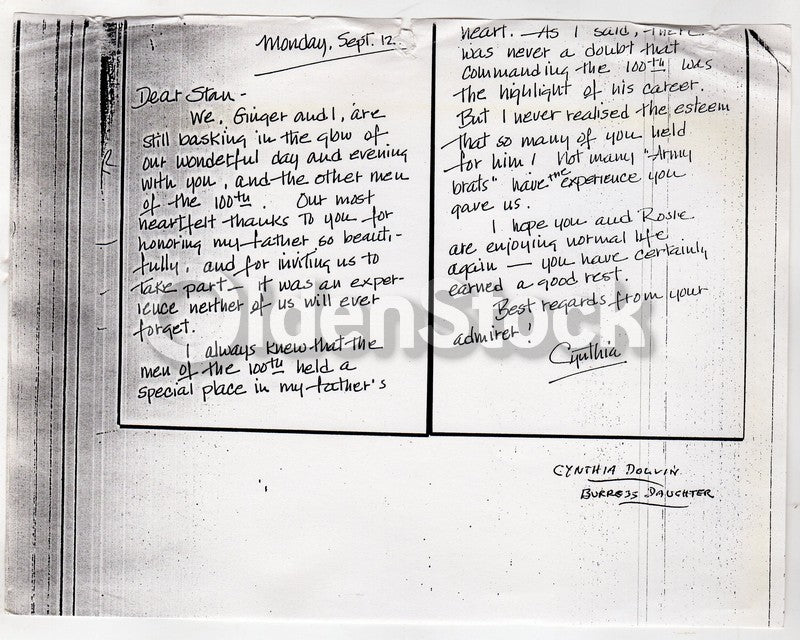 Monday, Sept. 12
Dear Stan -
We, Ginger and I, are
still basking in the glow of
our wonderful day and evening
with you, and the other men
of the 100th. Our most
heartfelt thanks to you for
honoring my father so beauti-
fully, and for inviting us to
take part. It was an exper-
ience neither of us will ever
forget.
I always knew that the
men of the 100th held a
special place in my father's
heart. — As I said, there
was never a doubt that
commanding the 100th was
the highlight of his career.
But I never realised the esteem
that so many of you held
for him! Not many "Army
brats" have the experience you
gave us.
I hope you and Rosie
are enjoying normal life
again — you have certainly
earned a good rest.
Best regards from your
admirer!
Cynthia
CYNTHIA
DAUGHTER
OldenStock